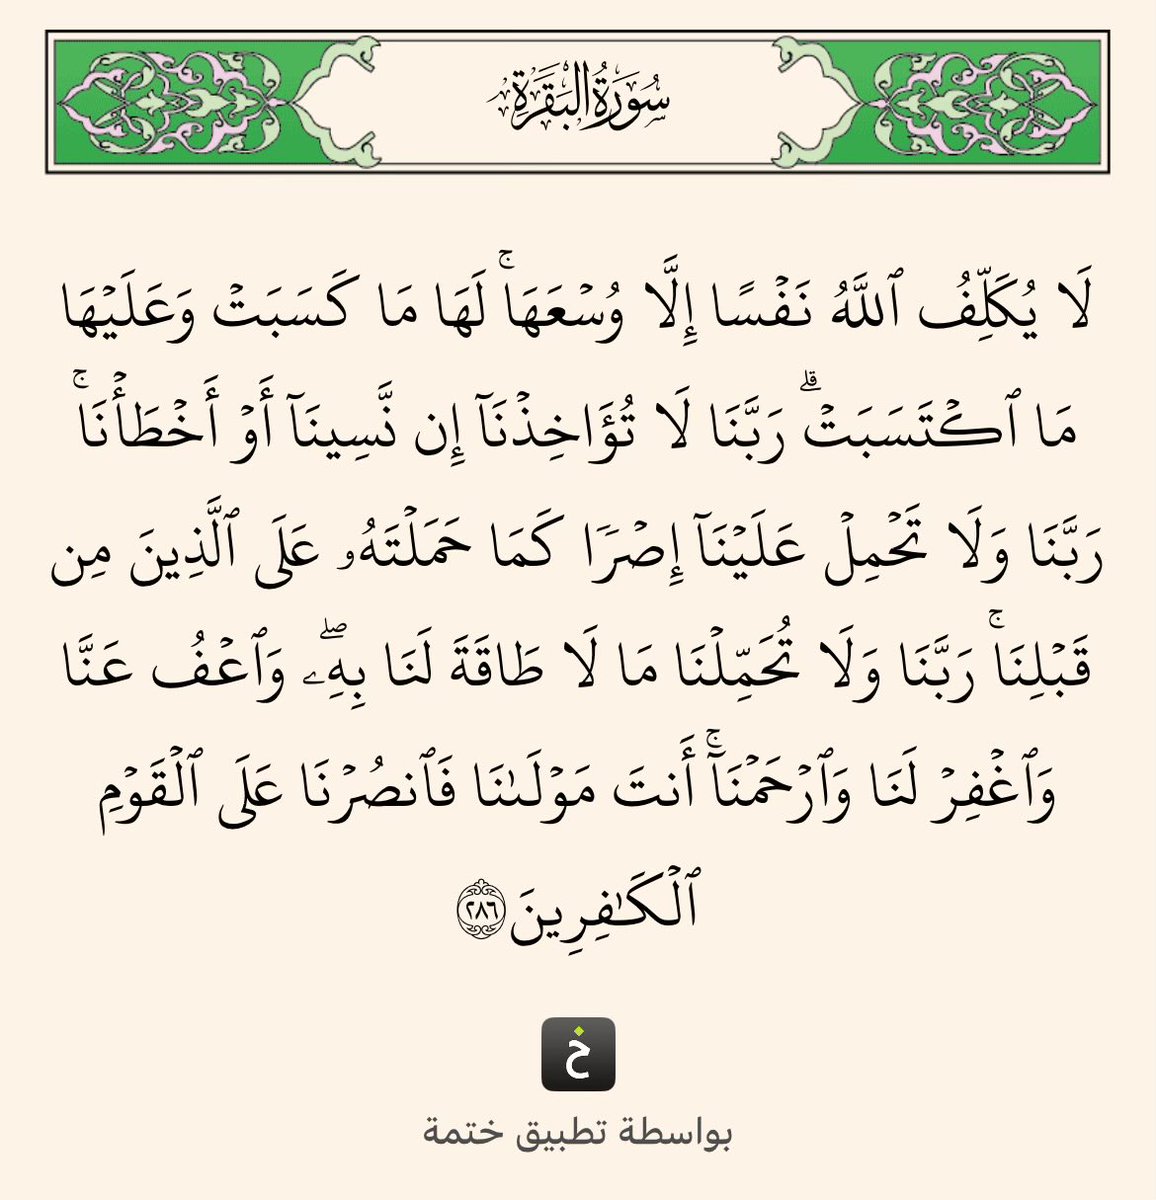 سُورَةُ البَقَرَةِ
لَا يُكَلِّفُ ٱللَّهُ نَفۡسًا إِلَّا وُسۡعَهَاۚ لَهَا مَا كَسَبَتۡ وَعَلَيۡهَا
مَا ٱكۡتَسَبَتۡۗ رَبَّنَا لَا تُؤَاخِذۡنَآ إِن نَّسِينَآ أَوۡ أَخۡطَأۡنَاۚ
رَبَّنَا وَلَا تَحۡمِلۡ عَلَيۡنَآ إِصۡرٗا كَمَا حَمَلۡتَهُۥ عَلَى ٱلَّذِينَ مِن
قَبۡلِنَاۚ رَبَّنَا وَلَا تُحَمِّلۡنَا مَا لَا طَاقَةَ لَنَا بِهِۦۖ وَٱعۡفُ عَنَّا
وَٱغۡفِرۡ لَنَا وَٱرۡحَمۡنَآۚ أَنتَ مَوۡلَىٰنَا فَٱنصُرۡنَا عَلَى ٱلۡقَوۡمِ
ٱلۡكَٰفِرِينَ ٢٨٦
خ
بواسطة تطبيق ختمة